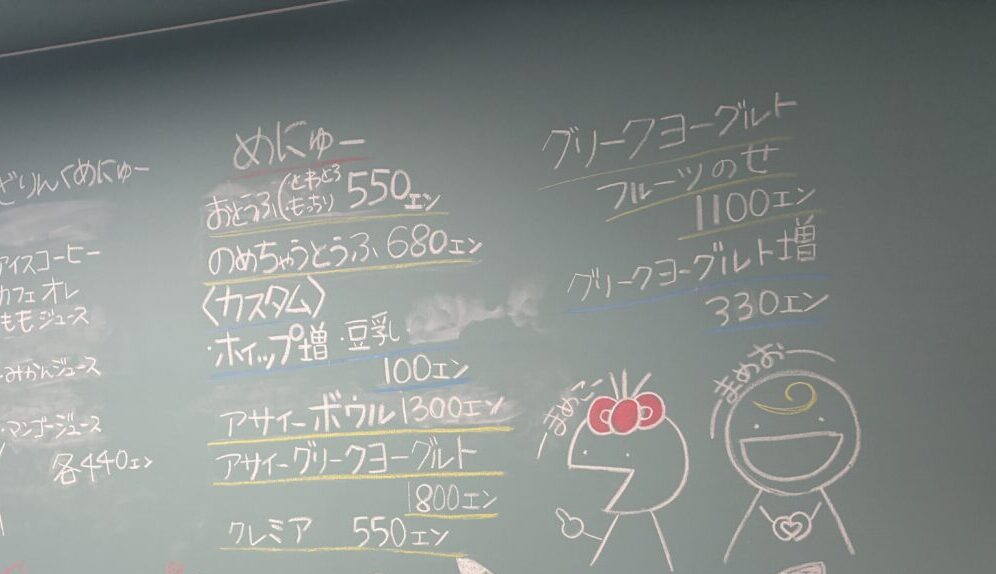 どりんくめにゅー
アイスコーヒー
カフェオレ
ももジュース
みかんジュース
・マンゴージュース
各440エン
めにゅー
おとうふ(とろとろ もっちり 550エン
のめちゃうとうふ 680エン
〈カスタム〉
・ホイップ増 ・豆乳
100エン
アサイーボウル 1300エン
アサイーグリークヨーグルト
1800エン
クレミア 550エン
グリークヨーグルト
フルーツのせ
1100エン
グリークヨーグルト増
330エン
まめこ
まめお